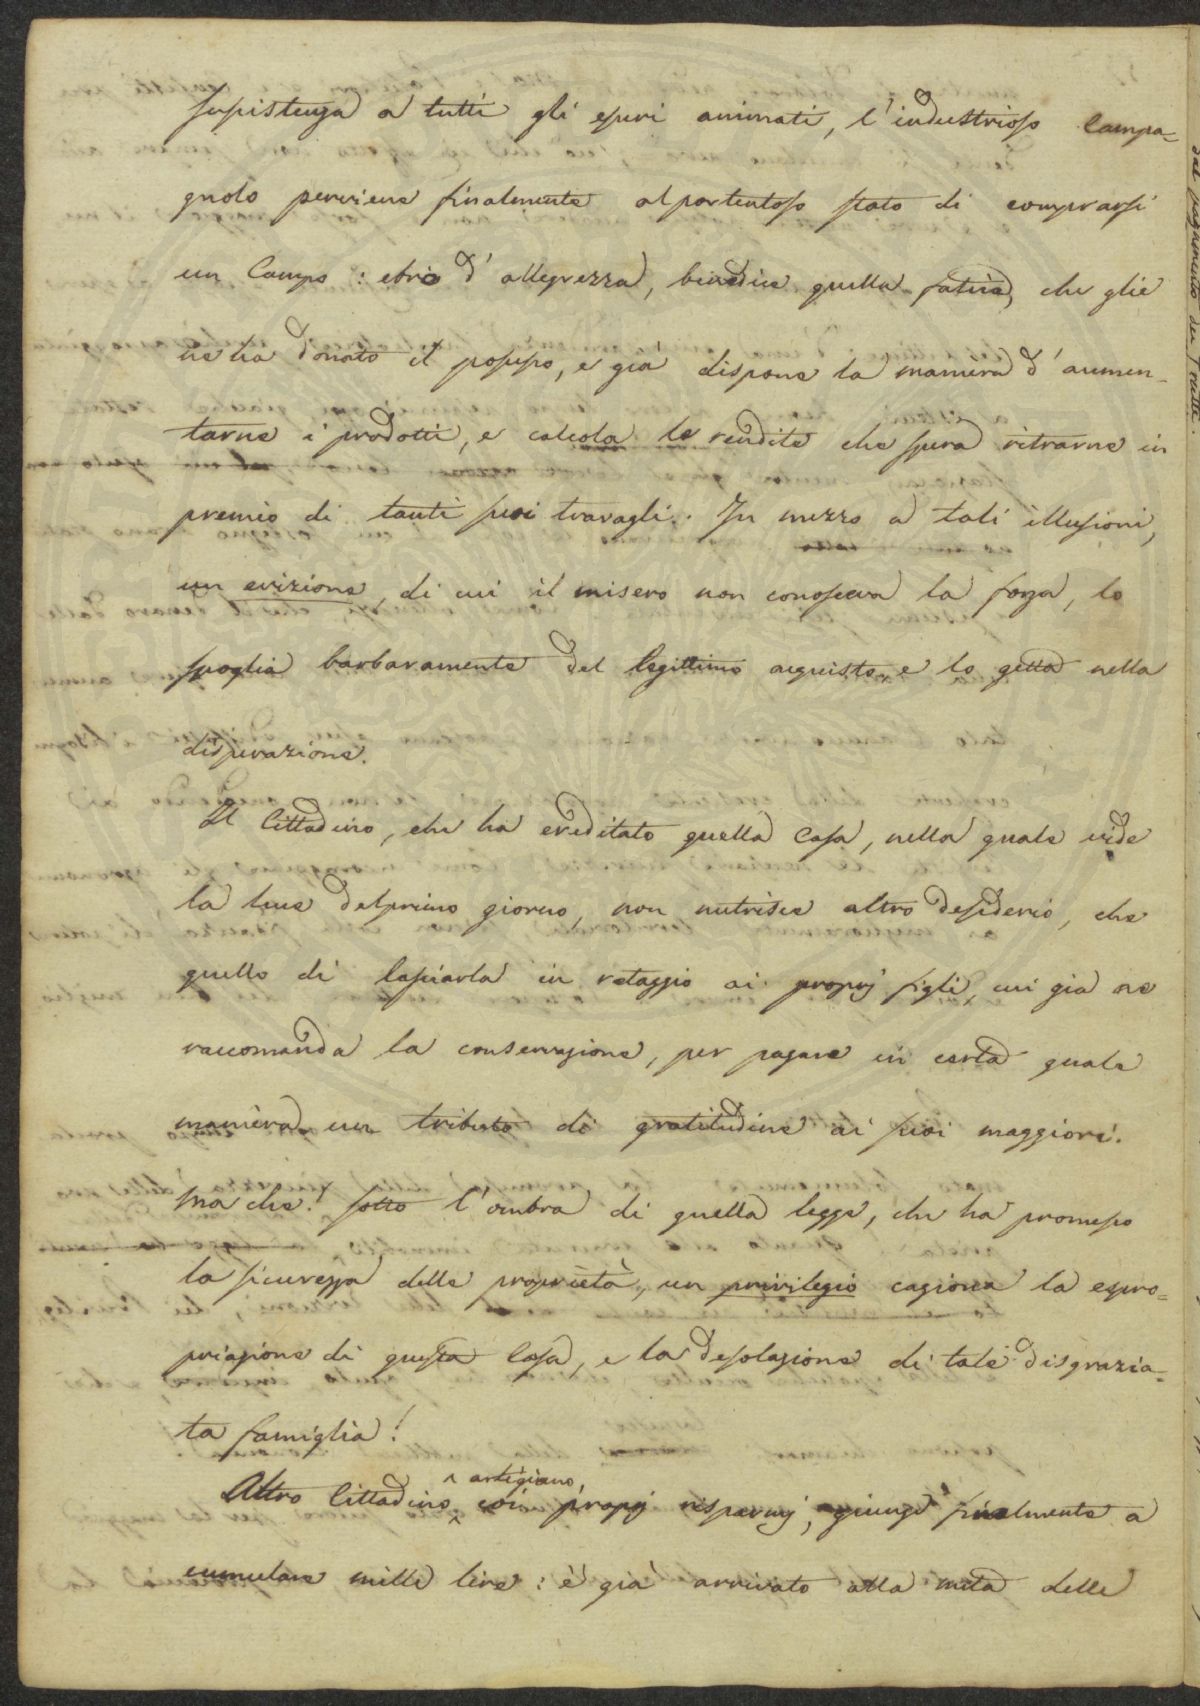 sussistenza a tutti gli esseri animati, l'industrioso Campa=
gnolo perviene finalmente al portentoso stato di comprarsi
un Campo : ebrio d'allegrezza, benedice quella fatica, che glie
ne ha donato il possesso, e già dispone la maniera d'aumen=
tarne i prodotti, e calcola le rendite che spera ritrarne in
premio di tanti suoi travagli. In mezzo a tali illusioni,
un evizione, di cui il misero non conosceva la forza, lo
spoglia barbaramente del legittimo acquisto, e lo getta nella
disperazione.
Il Cittadino, che ha ereditato quella Casa, nella quale vide
la luce del primo giorno, non nutrisce altro desiderio, che
quello di lasciarla in retaggio ai proprj figli, cui già ne
raccomanda la conservazione, per pagare in certa quale
maniera un tributo di gratitudine ai suoi maggiori.
Ma che! sotto l'ombra di quella legge, che ha promesso
la sicurezza delle proprietà, un privilegio cagiona la espro=
priazione di questa Casa, e la desolazione di tale disgrazia=
ta famiglia!
Altro Cittadino ^ artigiano, coi proprj risparmj, giunge finalmente a
cumulare mille lire : è già arrivato alla metà delle